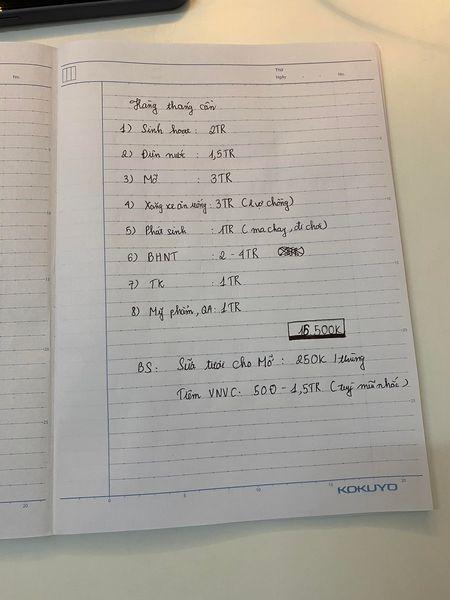 Thứ
Ngày . . No.
No.
Hàng tháng cần
1) Sinh hoạt : 2TR
2) Điện nước : 1,5TR
3) Mỡ : 3TR
4) Xăng xe ăn uống : 3TR (2 vợ chồng)
5) Phát sinh : 1TR (ma chay, đi chơi)
6) BHNT : 2 - 4TR
7) TK : 1TR
8) Mỹ phẩm, QA : 1TR
15.500K
BS : Sữa tươi cho Mỡ : 250K / thùng
Tiêm VNVC : 500 - 1,5TR (tuỳ mũi nhắc)
KOKUYO